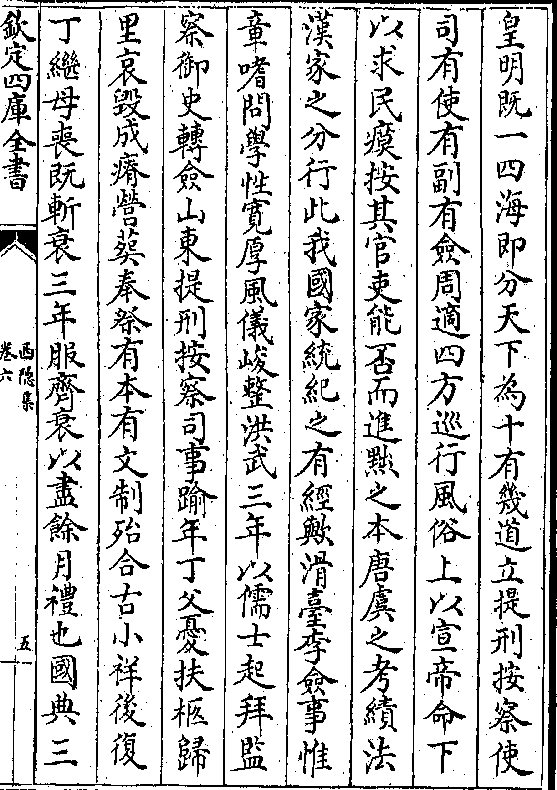 皇明既一四海即分天下為十有幾道立提刑按察使
司有使有副有僉周適四方巡行風俗上以宣帝命下
以求民瘼按其官吏能否而進黜之本唐虞之考績法
漢家之分行此我國家統紀之有經歟滑臺李僉事惟
章嗜問學性寛厚風儀峻整洪武三年以儒士起拜監
察御史轉僉山東提刑按察司事踰年丁父憂扶柩歸
里哀毀成瘠營葬奉祭有本有文制殆合古小祥後復
丁繼母喪既斬衰三年服齊衰以盡餘月禮也國典三
欽定四庫全書
西隱集
卷六
五